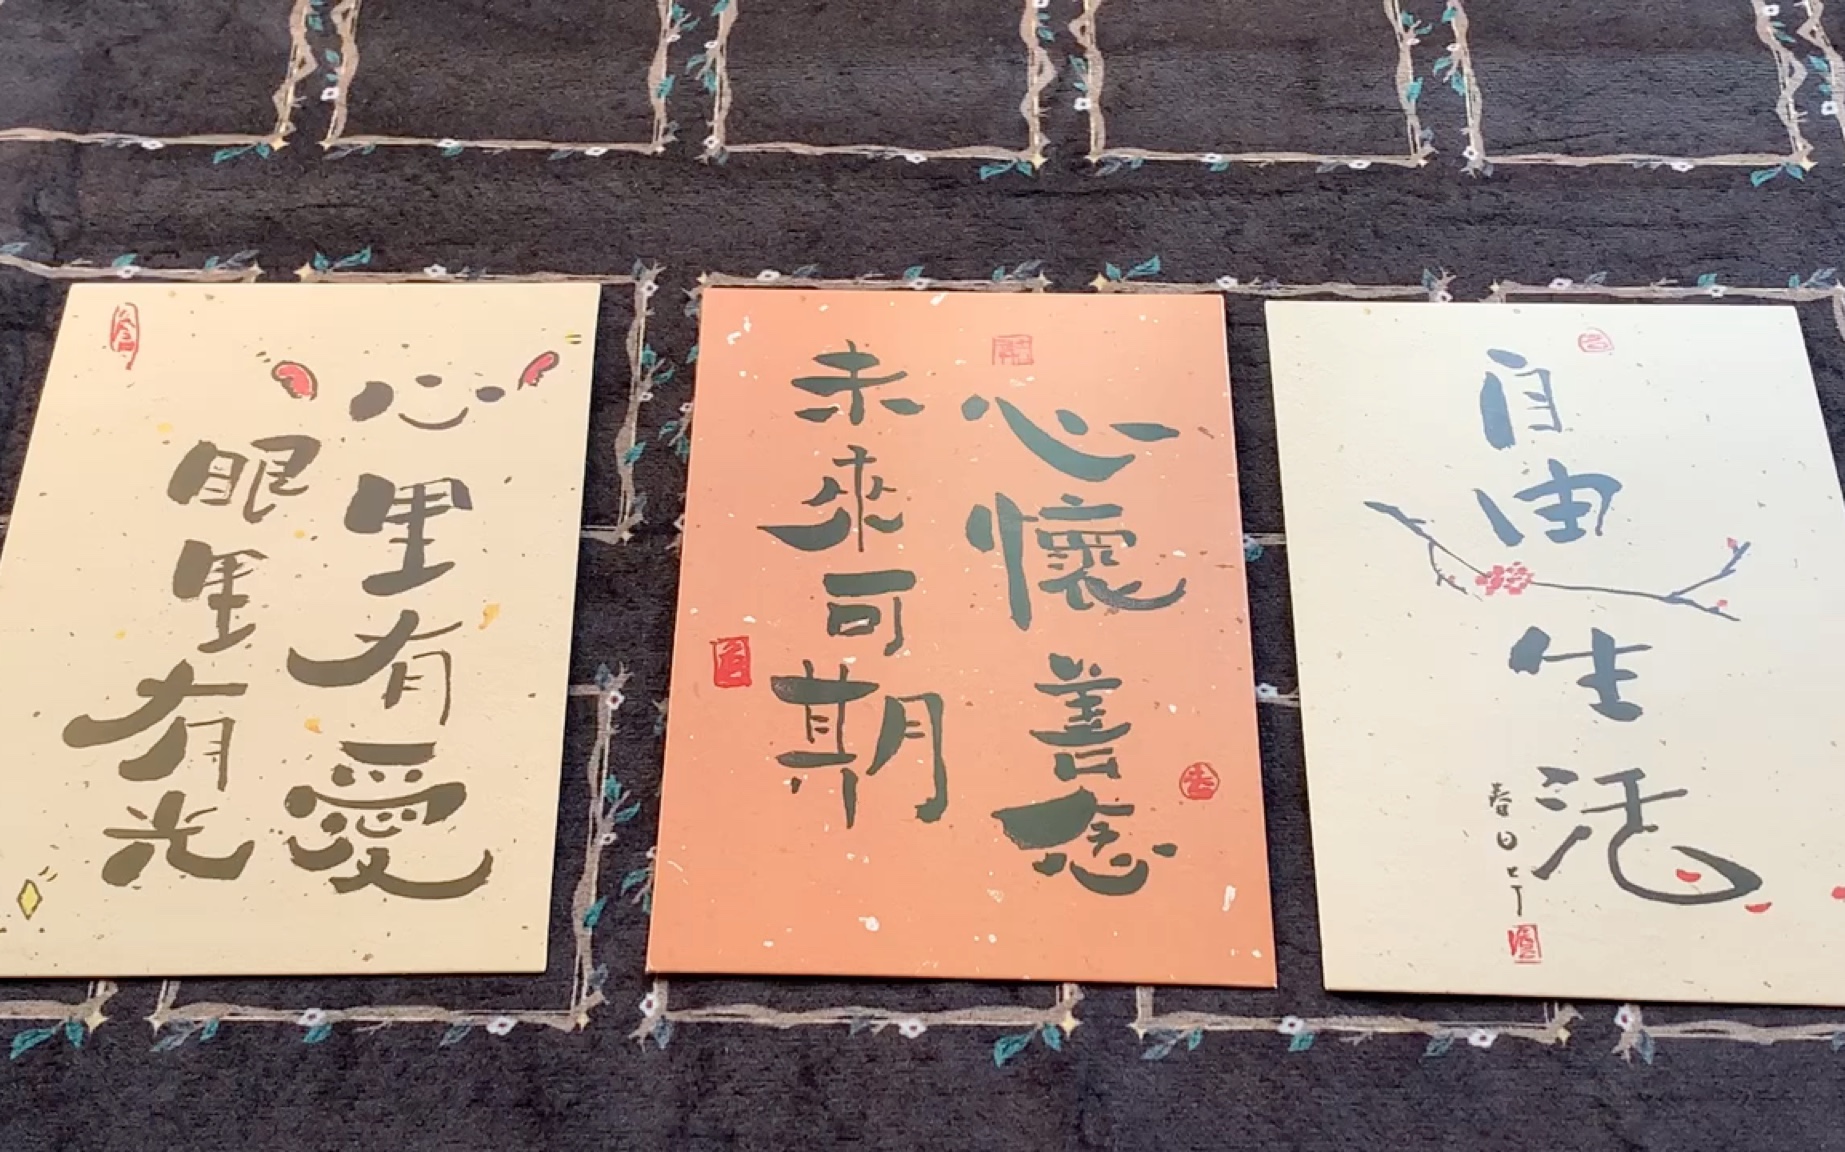 心里有愛
眼里有光
心懷善念
未來可期
自由生活
春日